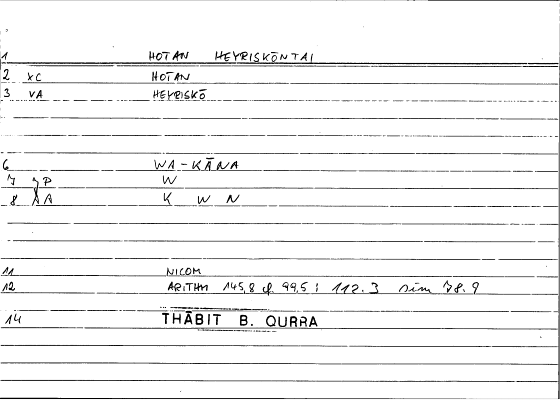 1 HOTAN HEYRISKŌNTAI
2 XC HOTAN
3 VA HEYRISKŌ
6 WA-KĀNA
7 P W
8 A K W N
11 NICOM
12 ARITHM 145,8 cf. 99,5; 112.3 sim 78.9
14 THĀBIT B. QURRA